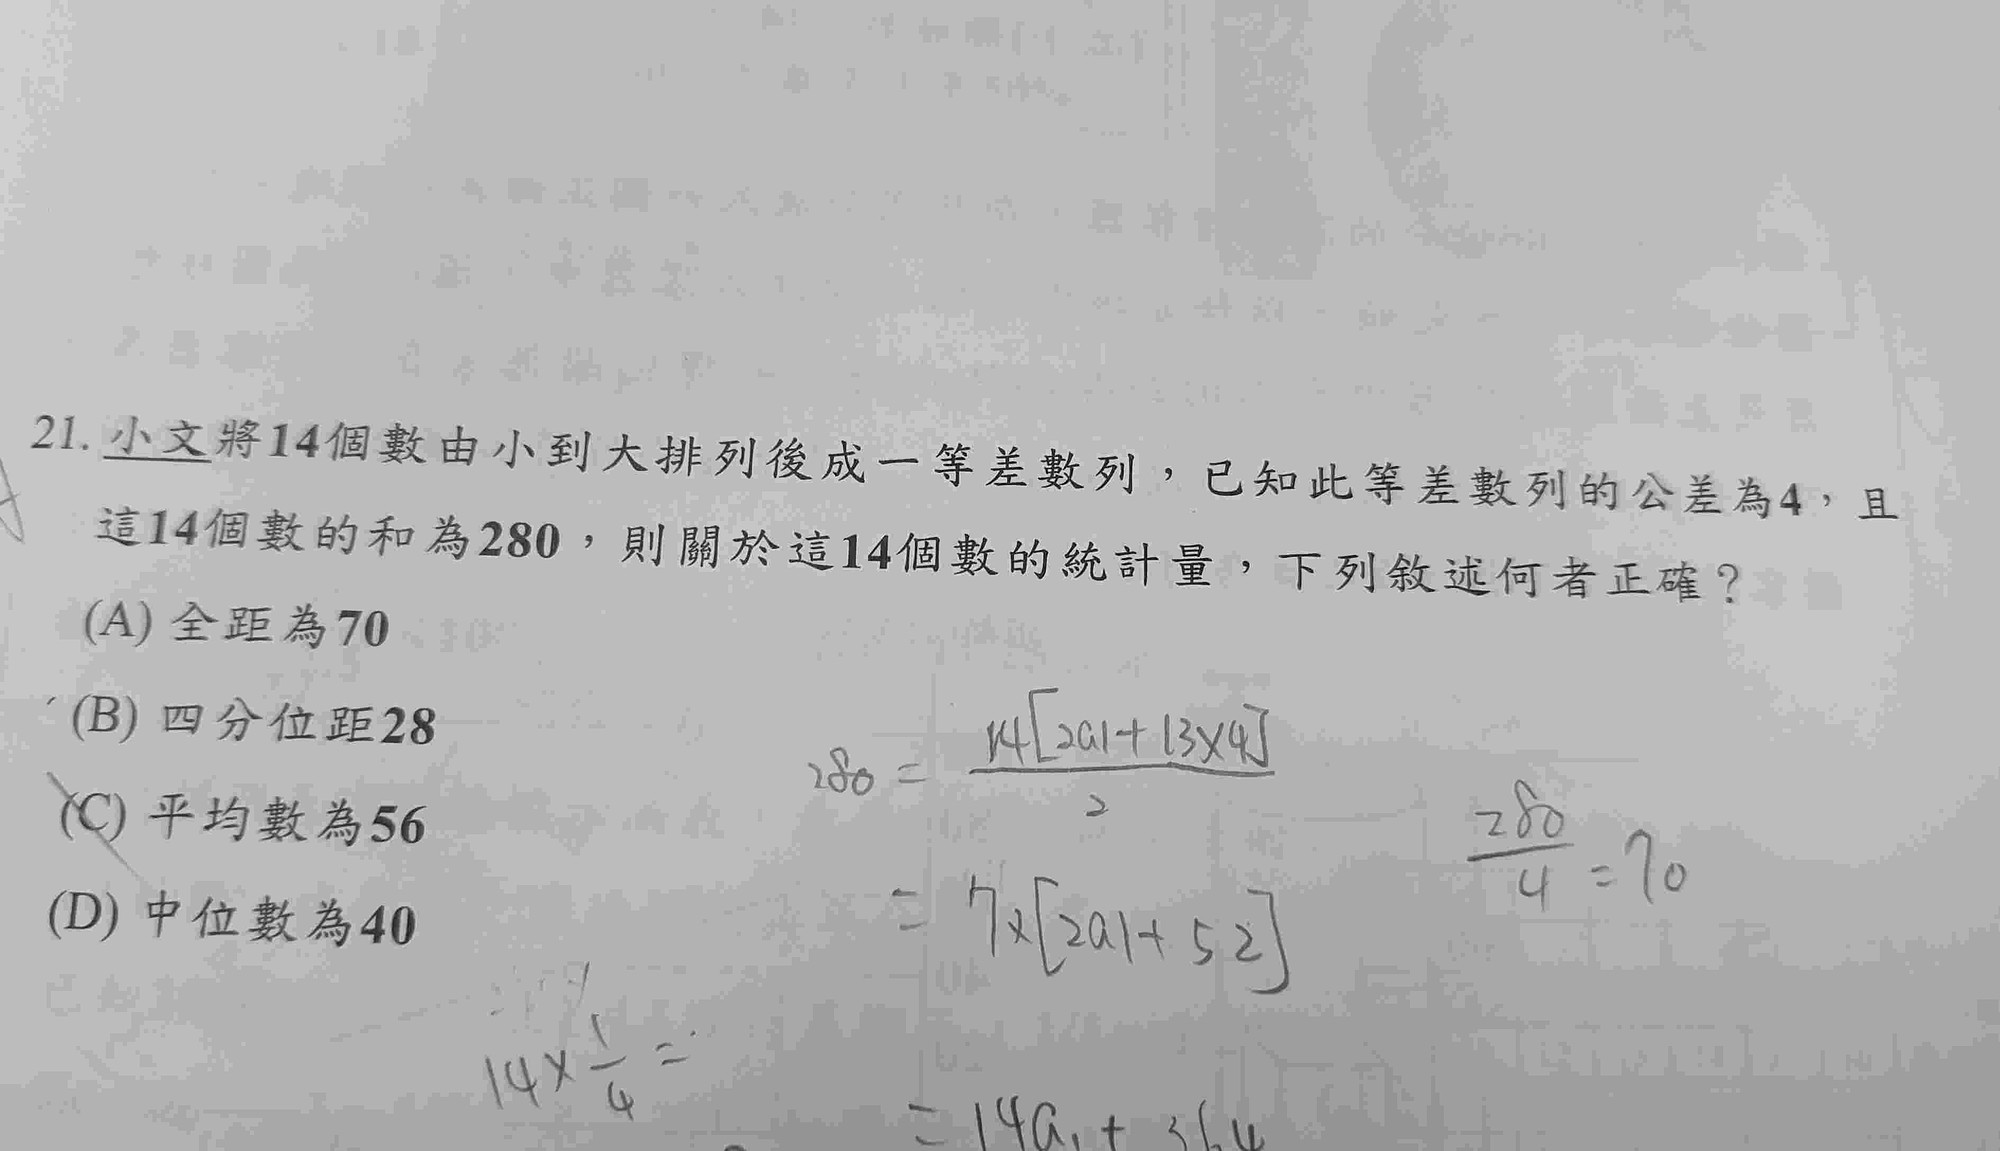 21. 小文將14個數由小到大排列後成一等差數列，已知此等差數列的公差為4，且
這14個數的和為280，則關於這14個數的統計量，下列敘述何者正確？
(A) 全距為70
(B) 四分位距28
(C) 平均數為56
(D) 中位數為40
280 = 14[2a1+13×4]
2
= 7×[2a1+52]
280
4
=70
14×1/4=
=14a1+364